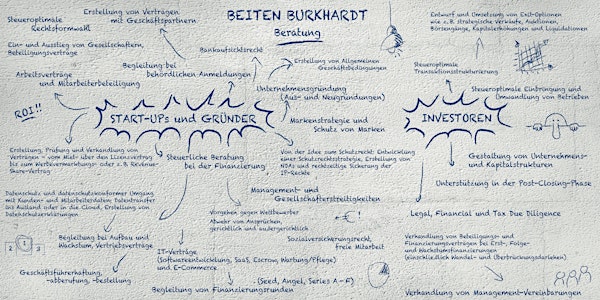 BEITEN BURKHARDT
Beratung
Steueroptimale
Rechtsformwahl
Erstellung von Verträgen
mit Geschäftspartnern
Ein- und Ausstieg von Gesellschaftern,
Beteiligungsverträge
Bankaufsichtsrecht
Arbeitsverträge
und Mitarbeiterbeteiligung
Begleitung bei
behördlichen Anmeldungen
Erstellung von Allgemeinen
Geschäftsbedingungen
Unternehmensgründung
(Aus- und Neugründungen)
ROI!!
START-UPs und GRÜNDER
Markenstrategie und
Schutz von Marken
Erstellung, Prüfung und Verhandlung von
Verträgen – vom Miet- über den Lizenzvertrag
bis zum Wertevermarktungs- oder z.B. Revenue-
Share-Vertrag
Steuerliche Beratung
bei der Finanzierung
Von der Idee zum Schutzrecht: Entwicklung
einer Schutzrechtsstrategie, Erstellung von
NDAs und rechtzeitige Sicherung der
IP-Rechte
Datenschutz und datenschutzkonformer Umgang
mit Kunden- und Mitarbeiterdaten; Datentransfer
ins Ausland oder in die Cloud, Erstellung von
Datenschutzerklärungen
Management- und
Gesellschafterstreitigkeiten
Vorgehen gegen Wettbewerber
Abwehr von Ansprüchen,
gerichtlich und außergerichtlich
€!
Begleitung bei Aufbau und
Wachstum, Vertriebsverträge
2 1 3
IT-Verträge
(Softwareentwicklung, SaaS, Escrow, Wartung/Pflege)
und E-Commerce
Sozialversicherungsrecht,
freie Mitarbeit
Geschäftsführerhaftung,
-abberufung, -bestellung
(Seed, Angel, Series A – F)
Begleitung von Finanzierungsrunden
Entwurf und Umsetzung von Exit-Optionen
wie z.B. strategische Verkäufe, Auktionen,
Börsengänge, Kapitalerhöhungen und Liquidationen
Steueroptimale
Transaktionsstrukturierung
Steueroptimale Einbringung und
Umwandlung von Betrieben
INVESTOREN
Gestaltung von Unternehmens-
und Kapitalstrukturen
Unterstützung in der Post-Closing-Phase
Legal, Financial und Tax Due Diligence
Verhandlung von Beteiligungs- und
Finanzierungsverträgen bei Erst-, Folge-
und Wachstumsfinanzierungen
(einschließlich Wandel- und Überbrückungsdarlehen)
Verhandlung von Management-Vereinbarungen